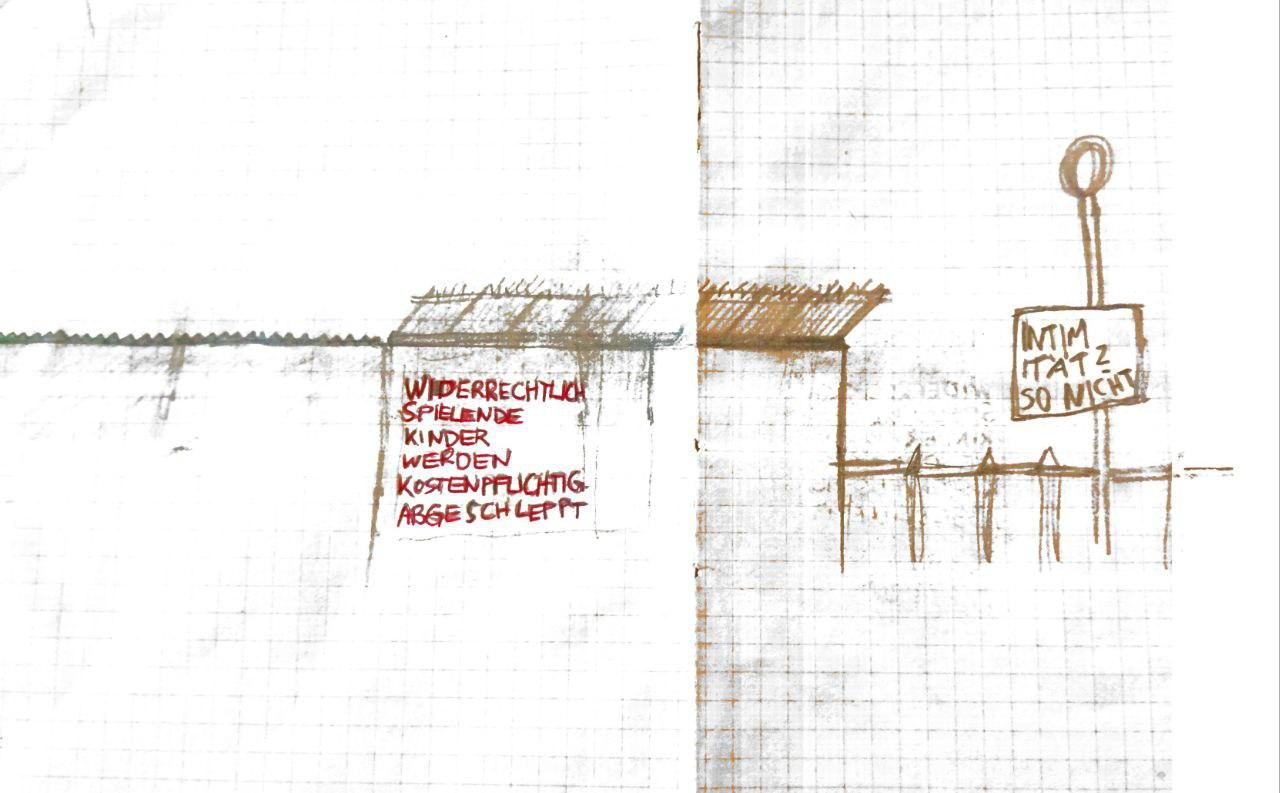 WIDERRECHTLICH
SPIELENDE
KINDER
WERDEN
KOSTENPFLICHTIG
ABGESCHLEPPT
INTIM
ITÄT?
SO NICHT